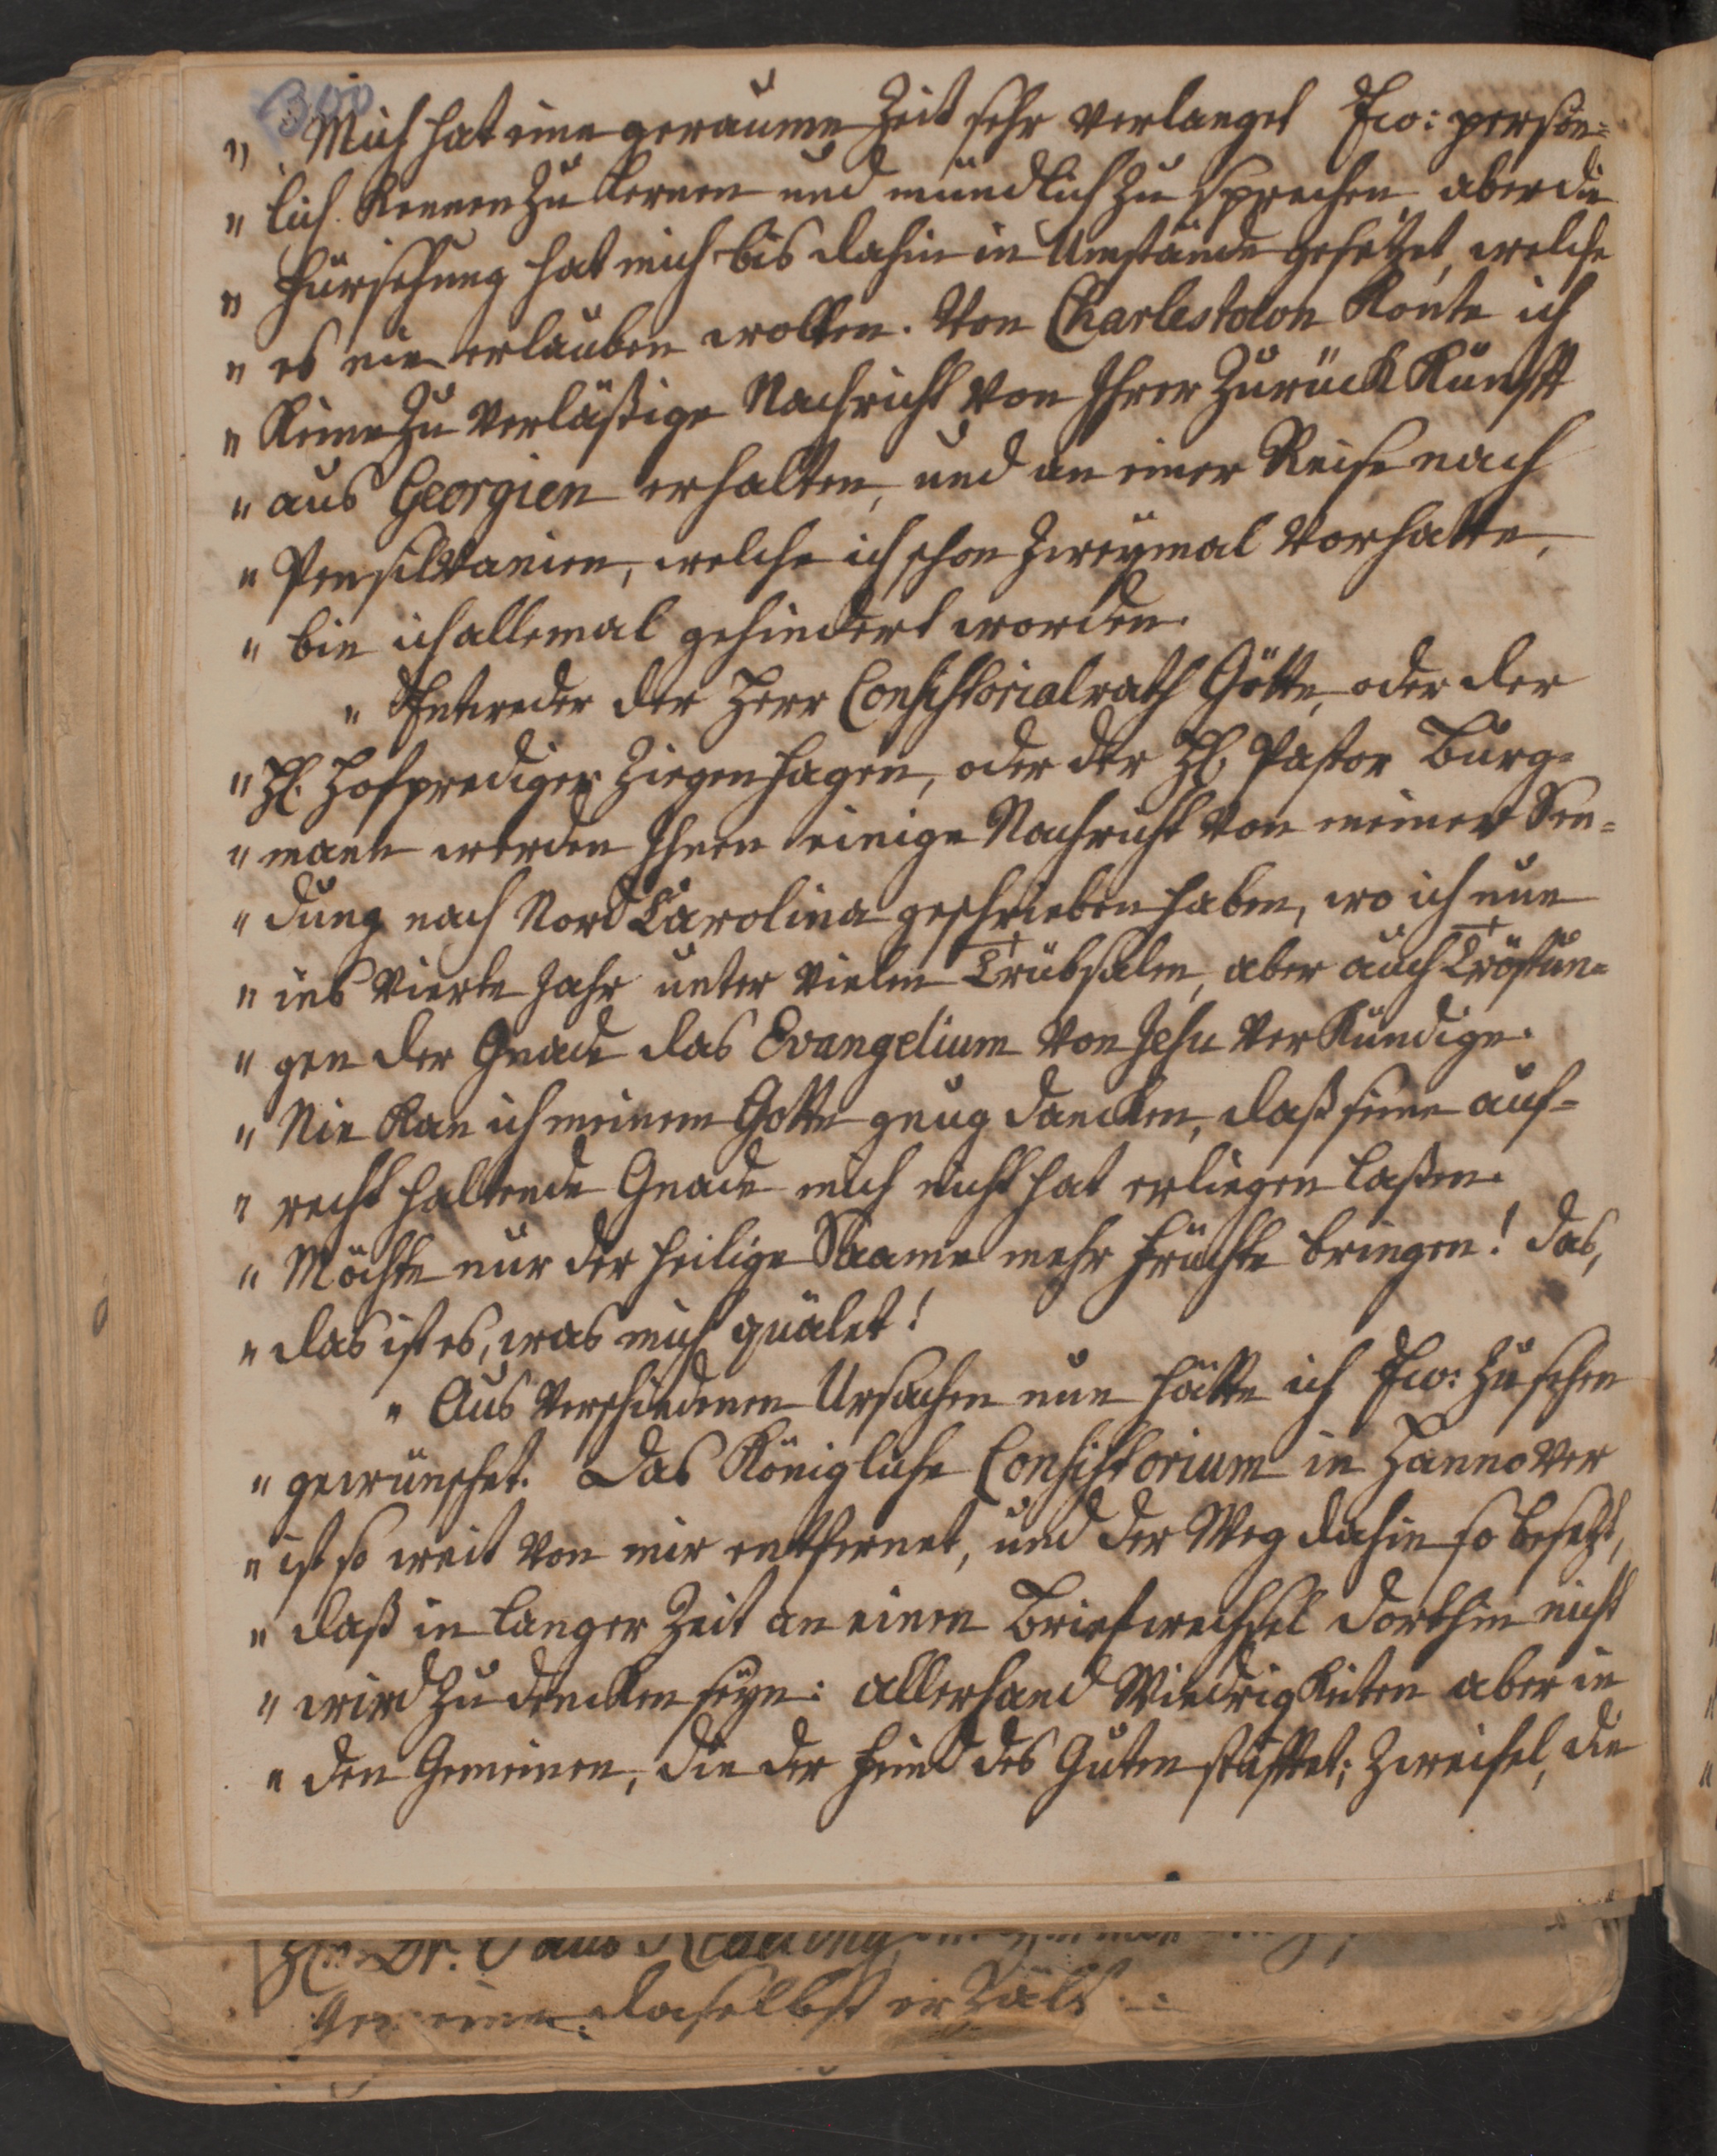 300
" Mich hat eine geraume Zeit sehr verlanget Ew: persön=
" lich kennen zu lernen und mündlich zu sprechen, aber die
" Fürsehung hat mich bis dahin in Umstände gesetzet, welche
" es nie erlauben wollen. Von Charlestown konte ich
" keine zu verläßige Nachricht von Ihrer Zurückkunfft
" aus Georgien erhalten, und an einer Reise nach
" Pensilvanien, welche ich schon zweymal vorhatte,
" bin ich allemal gehindert worden.
" Entweder der Herr Consistorialrath Götte, oder der
" H. Hofprediger Ziegenhagen, oder der H. Pastor Burg=
" mann werden Ihnen einige Nachricht von meiner Sen=
" dung nach Nord Carolina geschrieben haben, wo ich nun
" ins vierte Jahr unter vielen Trübsalen, aber auch Tröstun=
" gen der Gnade das Evangelium von Jesu verkündige.
" Nie kan ich meinem Gotte gnug dancken, daß seine auf=
" recht haltende Gnade mich nicht hat erliegen laßen.
" Möchte nur der heilige Saame mehr Früchte bringen! das,
" das ist es, was mich quälet!
" Aus verschiedenen Ursachen nun hätte ich Ew: zu sehen
" gewünschet. Das Königliche Consistorium in Hannover
" ist so weit von mir entfernet, und der Weg dahin so besetzt,
" daß in langer Zeit an einen Briefwechsel dorthin nicht
" wird zu dencken seyn: allerhand Wiedrigkeiten aber in
" den Gemeinen, die der Feind des Guten stifftet; Zweifel, die
Dr. aus Reading
Gemeine daselbst erzält